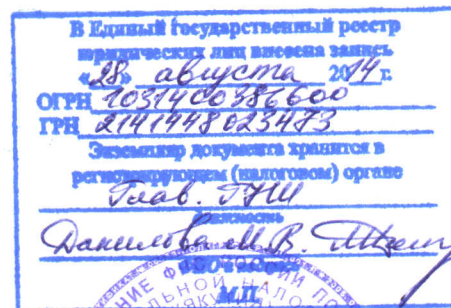 В Единый государственный реестр
юридических лиц внесена запись
«28» августа 2014 г.
ОГРН 1031400386600
ГРН 2141448023473
Экземпляр документа хранится в
регистрирующем (налоговом) органе
Глав. ГНИ
должность
Данилова М.В.
М.П.